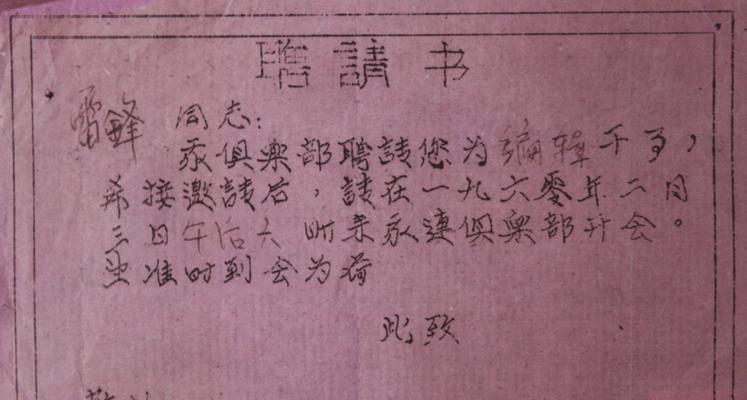 聘請书
雷鋒 同志:
我俱樂部聘請您为编辑干事,
希接邀請后,請在一九六零年二月
三日午后六时来我連俱樂部开会。
望准时到会为荷
此致